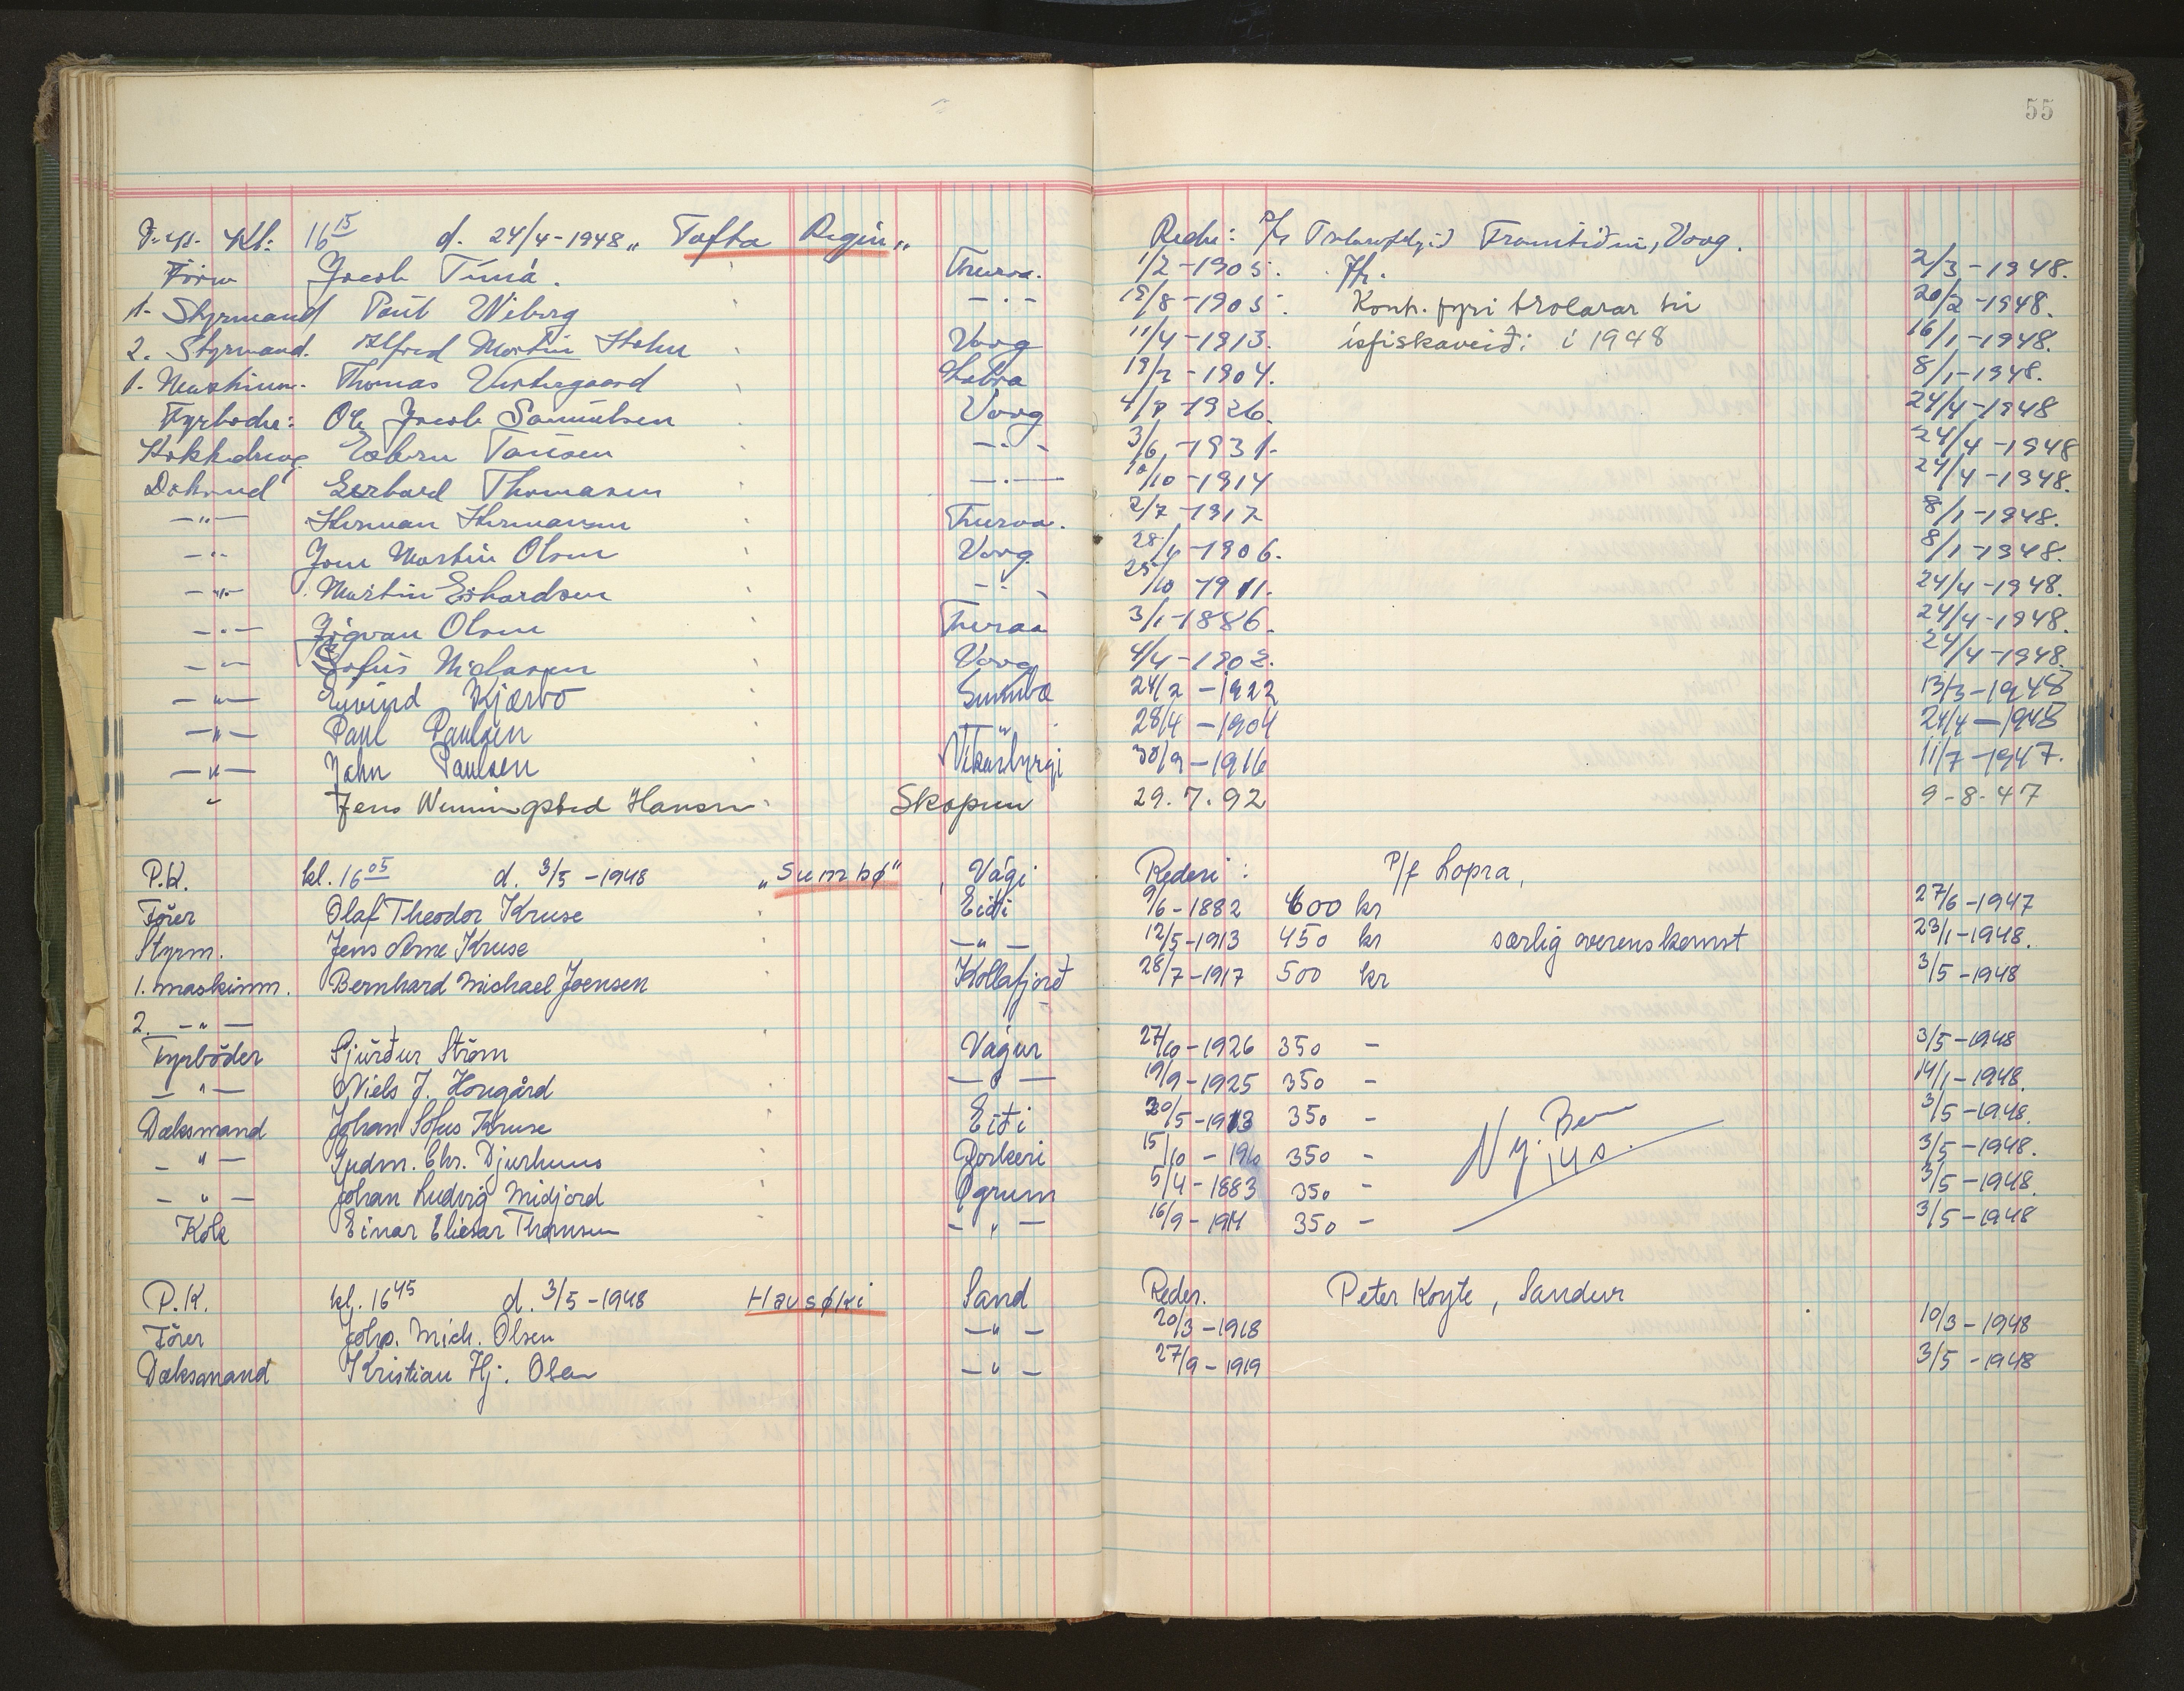 55
Kl: 16 15 d. 24/4-1948 „Tofta Regin„ Rederi: P/f Framtíðin, Vaag.
Fører Jacob Timá. Tveraa. 1/2-1905. 2/3-1948.
1. Styrmand Paul Wiberg —·— /8-1905. Kontr. fyri trolarar til 20/2-1948.
2. Styrmand. Alfred Martin Holm Vaag 11/4-1913. ísfiskaveiði í 1948 16/1-1948.
1. Maskinm. Thomas Vestergaard 1904. 8/1-1948.
Fyrbøder: Ole Jacob Samuelsen Vaag 1926. 24/4-1948
Kokkedreng Esbern Tausen —·— 3/6-1931. 24/4-1948
Gerhard Thomasen —·— 10/10-1914 24/4-1948.
—"— Herman Hermansen Tveraa. 2/7-1917 8/1-1948.
—"— Martin Olsen Vaag 1906. 8/1-1948.
—"— Martin 25/10-1911. 24/4-1948.
—"— Jógvan Olsen Tveraa 3/1-1886. 24/4-1948.
—"— Sofus Niclasen Vaag 4/4-1902. 24/4-1948.
—"— Eyvind Kjærbo Sumba 24/2-1922 13/3-1948
—"— Paul Paulsen —"— 28/4-1904 24/4-1948
—"— John Paulsen Vikarbyrgi 30/9-1916 11/7-1947.
" Jens Wenningsted Hansen Skopun 29.7.92 9-8-47
P.K. kl. 16 05 d. 3/5-1948 „Sumbø" Vági Rederi: P/f Lopra,
Fører Olaf Theodor Kruse Eiði 9/6-1882 600 kr 27/6-1947
Styrm. Jens Arne Kruse —"— 12/5-1913 450 kr særlig overenskomst 23/1-1948.
1. maskinm. Bernhard Michael Joensen Kollafjorð 28/7-1917 500 kr 3/5-1948
2. —"—
Fyrbøder Sjúrður Strøm Vágur 27/10-1926 350 - 3/5-1948
—"— Niels J. Hougård —"— 19/9-1925 350 - 14/1-1948.
Dæksmand Johan Sofus Kruse Eiði 20/5-1913 350 - 3/5-1948.
—"— Gudm. Chr. Djurhuus Porkeri 15/10 - 350 - 3/5-1948.
—"— Johan Ludvig Midjord Øgrum 5/4-1883 350 - 3/5-1948.
Kok Einar Eliesar Thomsen —"— 16/9- 350 - 3/5-1948
P.K. kl. 16 45 d. 3/5-1948 Havsøki Sand Reder. Peter Koyte, Sandur
Fører Johs. Mich. Olsen —"— 20/3-1918 10/3-1948
Dæksmand Kristian Hj. Olsen —"— 27/9-1919 3/5-1948